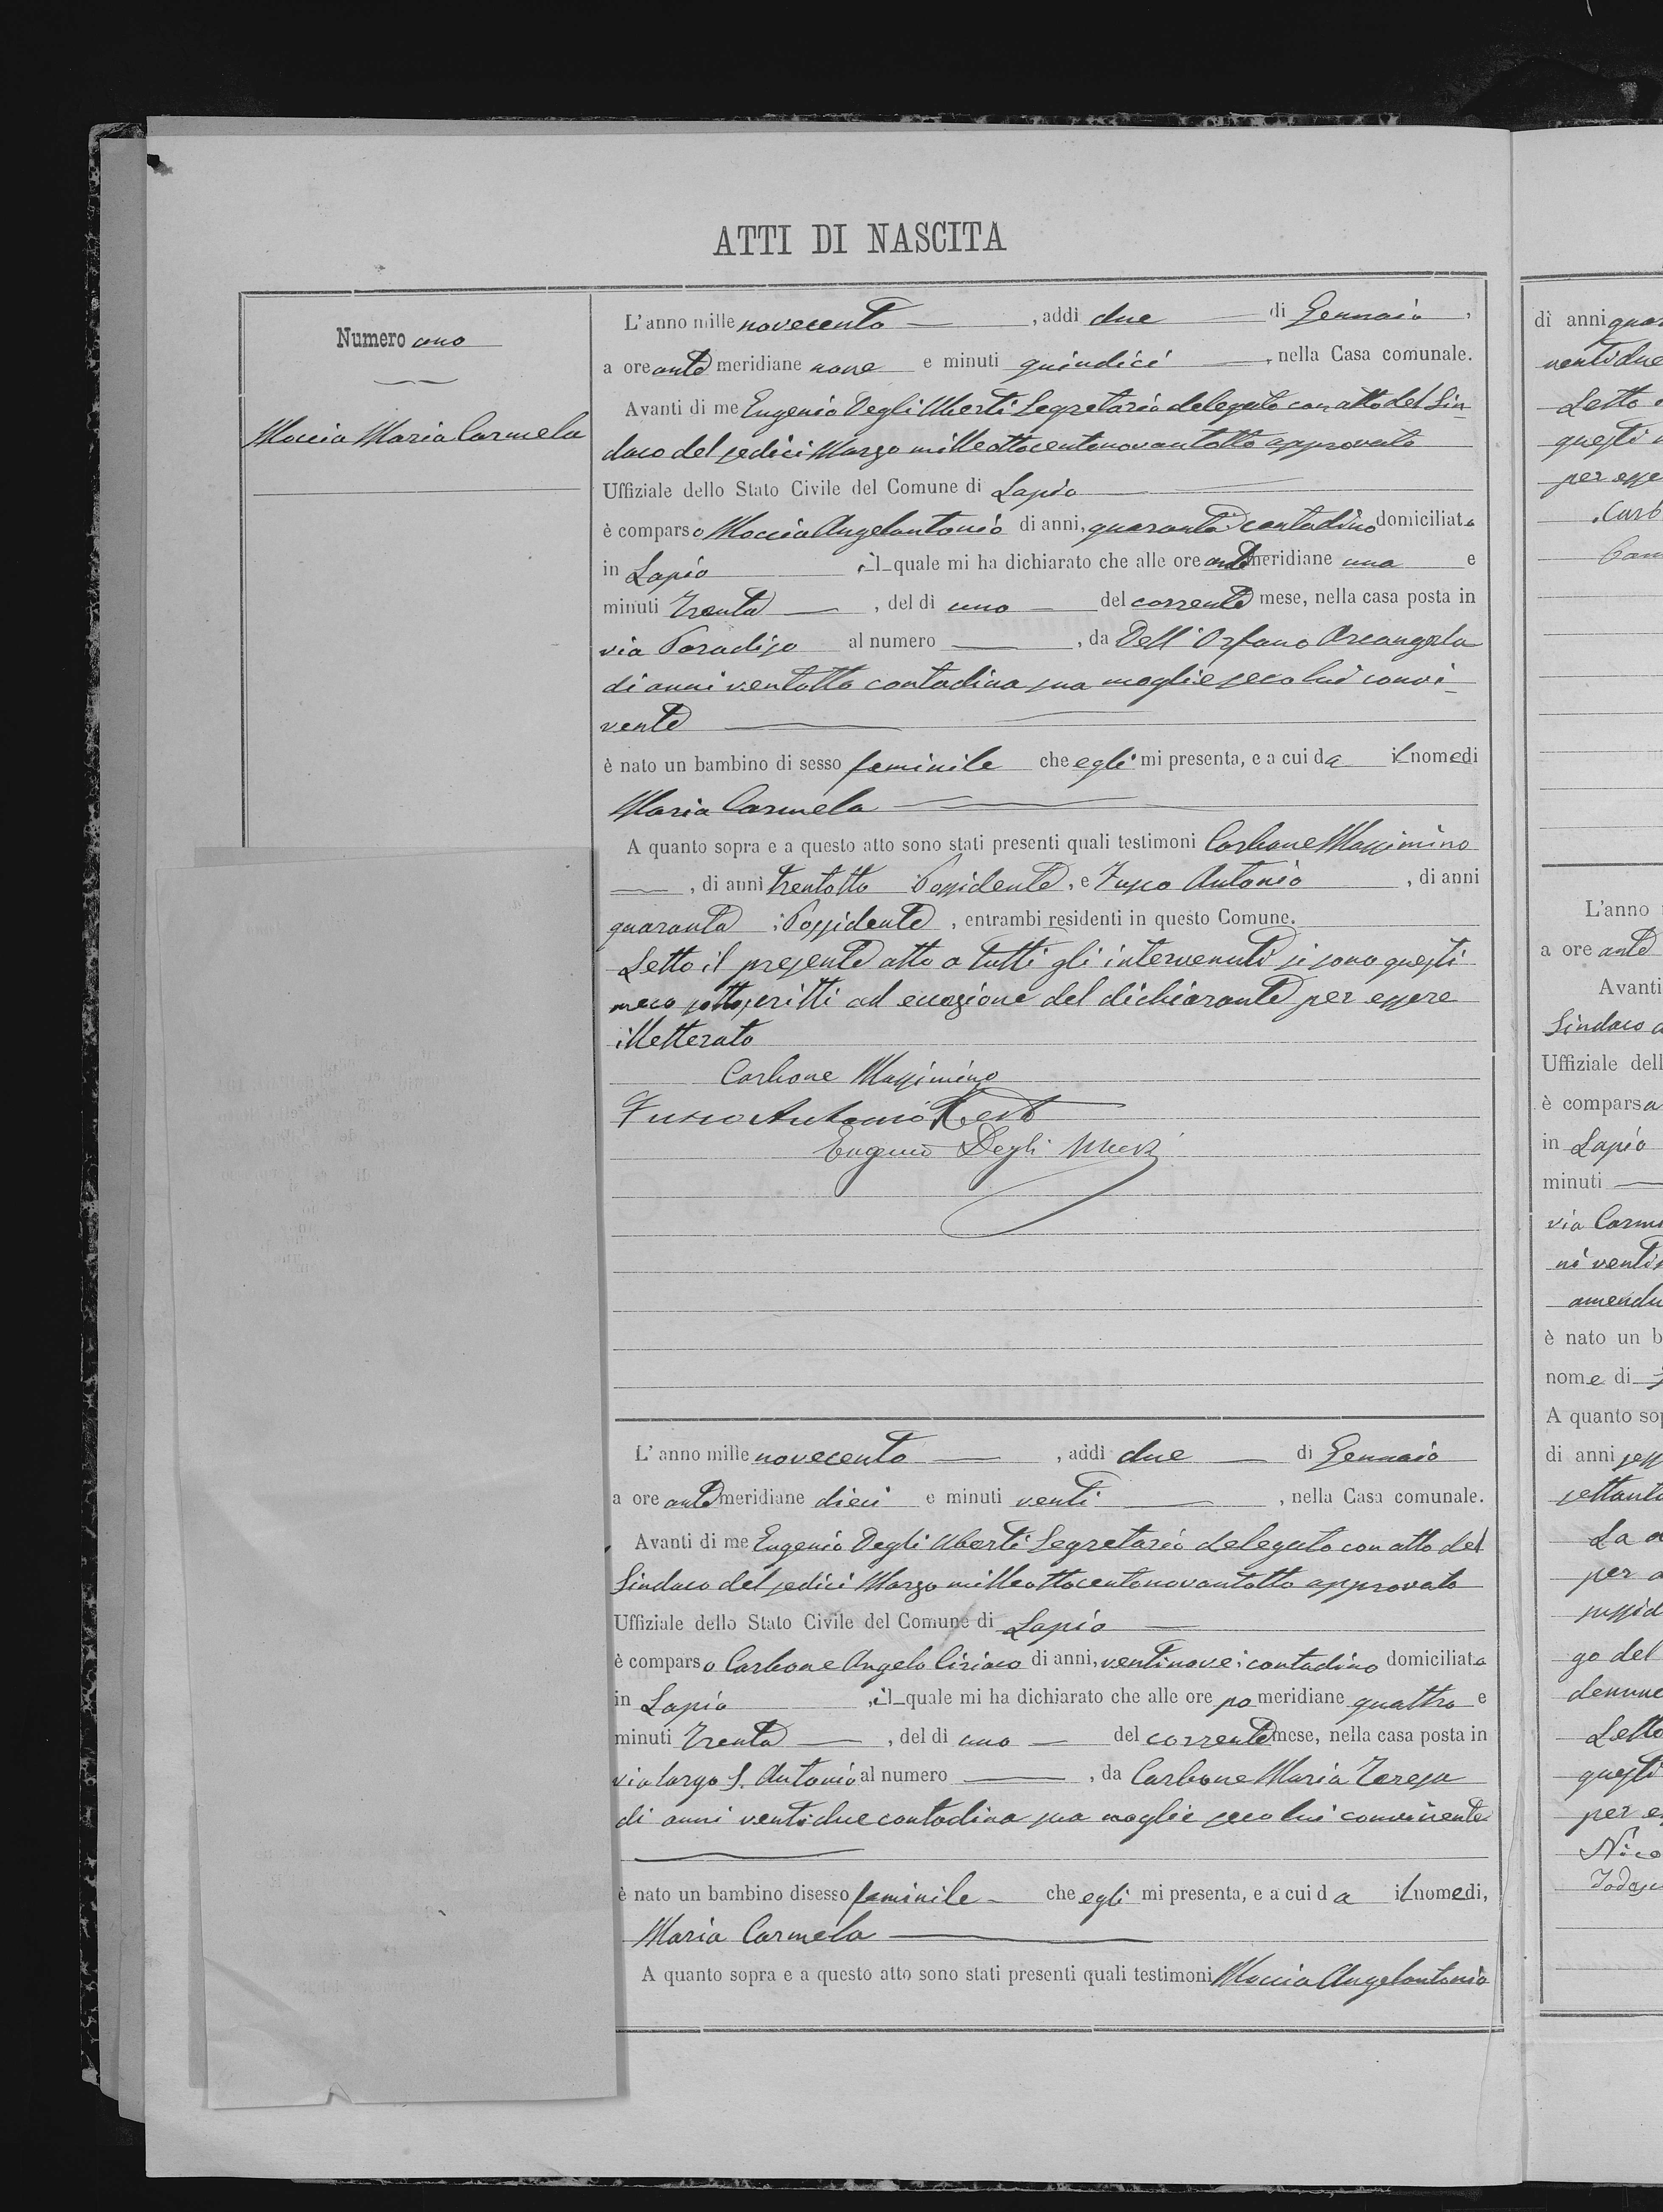 ATTI DI NASCITA
Numero uno
Moccia Maria Carmela
L'anno mille novecento, addì due di Gennaio,
a ore ante meridiane nove e minuti quindici, nella Casa comunale.
Avanti di me Eugenio Degli Uberti Segretario delegato con atto del Sin-
daco del sedici Marzo milleottocentonovantotto approvato
Uffiziale dello Stato Civile del Comune di Lapio
è comparso Moccia Angelantonio di anni, quaranta contadino domiciliato
in Lapio, il quale mi ha dichiarato che alle ore ante meridiane una e
minuti trenta, del dì uno del corrente mese, nella casa posta in
via Paradiso al numero, da Dell'Orfano Arcangela
di anni ventotto contadina sua moglie seco lui convi-
vente
è nato un bambino di sesso feminile che egli mi presenta, e a cui da il nome di
Maria Carmela
A quanto sopra e a questo atto sono stati presenti quali testimoni Carbone Massimino
, di anni trentotto Possidente, e Fusco Antonio, di anni
quaranta Possidente, entrambi residenti in questo Comune.
Letto il presente atto a tutti gli intervenuti si sono questi
meco sottoscritti ad eccezione del dichiarante per essere
illetterato
Carbone Massimino
Fusco Antonio
Eugenio Degli Uberti
L'anno mille novecento, addì due di Gennaio
a ore ante meridiane dieci e minuti venti, nella Casa comunale.
Avanti di me Eugenio Degli Uberti Segretario delegato con atto del
Sindaco del sedici Marzo milleottocentonovantotto approvato
Uffiziale dello Stato Civile del Comune di Lapio
è comparso Carbone Angelo Ciriaco di anni, ventinove contadino domiciliato
in Lapio, il quale mi ha dichiarato che alle ore po meridiane quattro e
minuti trenta, del dì uno del corrente mese, nella casa posta in
via largo S. Antonio al numero, da Carbone Maria Teresa
di anni ventidue contadina sua moglie seco lui convivente
è nato un bambino di sesso feminile che egli mi presenta, e a cui da il nome di,
Maria Carmela
A quanto sopra e a questo atto sono stati presenti quali testimoni Moccia Angelantonio
di anni
ventidue
Letto
questi
per esse
L'anno
a ore ante
Avanti
Sindaco
Uffiziale dell
è comparsa
in Lapio
minuti
via Carm
amendu
è nato un b
nome di
A quanto sop
di anni
settant
La
per
go del
Letto
questi
per e
Nico